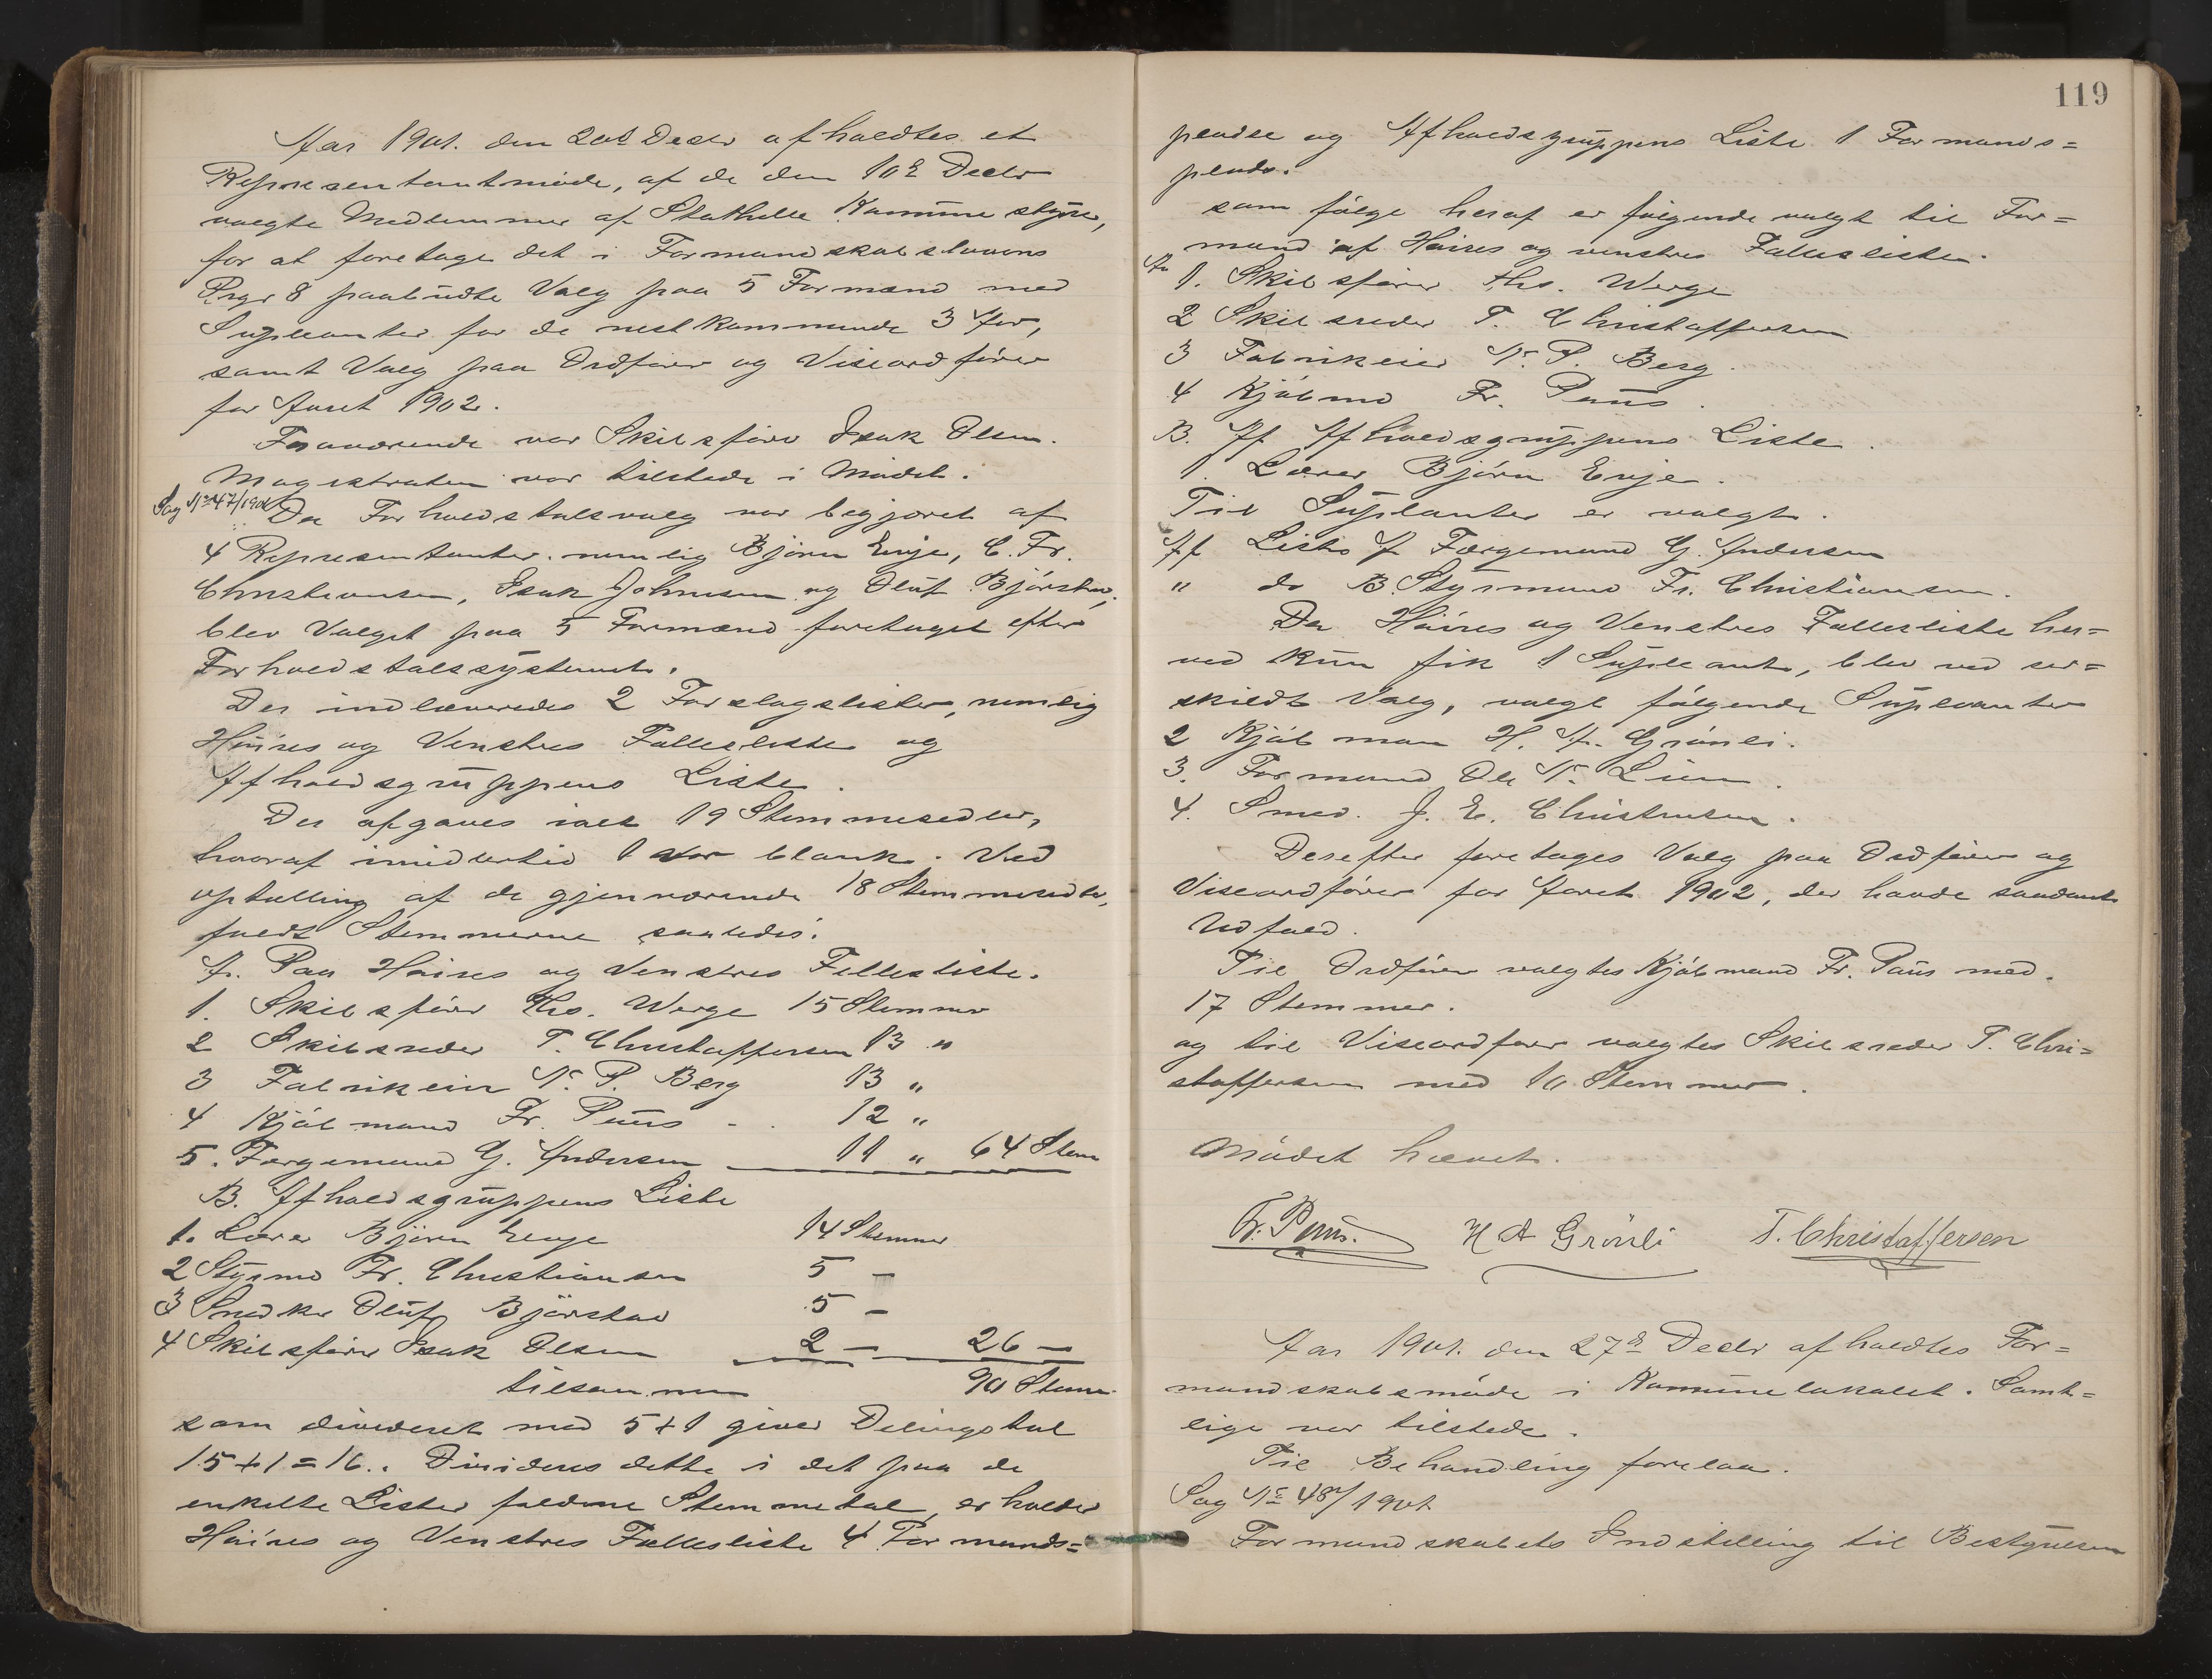 Aar 1901. den 20de Decbr afholdtes et
Repræsentantmøde, af de den 10de Decbr
valgte Medlemmer af Stathelle Kommunestyre,
for at foretage det i Formandskabslovens
Prgr 8 paabudte Valg paa 5 Formænd med
Supleanter for de nestkommende 3 Aar,
samt Valg paa Ordfører og Viseordfører
for Aaret 1902.
Fraværende var Skibsfører Isak Olsen.
Magistraten var tilstede i Mødet.
Sag No 47/1901
Da Forholdstalsvalg var begjæret af
4 Repræsentanter. nemlig Bjørn Enje, C. Fr.
Christiansen, Isak Johnsen og Oluf Bjørstad,
blev Valget paa 5 Formænd foretaget efter
Forholdstalssystemet.
Der indleveredes 2 Forslagslister, nemlig
Høires og Venstres Fællesliste og
Afholdsgruppens Liste.
Der afgaves ialt 19 Stemmesedler,
hvoraf imidlertid 1 var blank. Ved
optælling af de gjenværende 18 Stemmesedler,
faldt Stemmerne saaledes.
A. Paa Høires og Venstres Fellesliste.
1. Skibsfører Ths. Werge 15 Stemmer
2 Skibsreder T. Christoffersen 13 "
3 Fabrikeier N. P. Berg 13 "
4 Kjøbmand Fr. Paus - . 12 "
5. Færgemand G. Andersen 11 " 64 Stem
B. Afholdsgruppens Liste
1. Lærer Bjørn Enje 14 Stemmer
2 Styrmd Fr. Christiansen 5 –
3 Snedker Oluf Bjørstad 5 –
4 Skibsfører Isak Olsen 2 – 26 –
tilsammen 90 Stemm.
som divideret med 5+1 giver Delingstal
15+1=16.. Divideres dette i det paa de
enkelte Lister faldne Stemmetal, erholder
Høires og Venstres Fællesliste 4 Formands=
119
pladse og Afholdsgruppens Liste 1 Formands=
plads.
som følge heraf er følgende valgt til For=
mænd af Høires og venstres Fælleslisten.
A.
1. Skibsfører Ths. Werge
2 Skibsreder T. Christoffersen
3 Fabrikeier N. P. Berg.
4 Kjøbmd Fr. Paus.
B. Af Afholdsgruppens Liste.
1. Lærer Bjørn Enje.
Til Suplanter er valgt.
Af Liste A Færgemand G. Andersen
" do B. Styrmand Fr. Christiansen.
Da Høires og Venstres Fællesliste her=
ved kun fik 1 Supleant, blev ved sær=
skildt Valg, valgt følgende Supleanter
2 Kjøbman H. A. Grønli.
3. Formand Ole N. Lien.
4. Smed. J. E. Christensen.
Derefter foretages Valg paa Ordfører og
Viseordfører for Aaret 1902, der havde saadant
Udfald.
Til Ordfører valgtes Kjøbmand Fr. Paus med.
17 Stemmer.
og til Viseordfører valgtes Skibsreder T. Chri=
stoffersen med 10 Stemmer.
Mødet hævet.
Fr. Paus. H A Grönli T. Christoffersen
Aar 1901. den 27de Decbr afholdtes For=
mandskabsmøde i Kommunelokalet. Samt=
lige var tilstede.
Til Behandling forelaa.
Sag No 48/1901
Formandskabets Indstilling til Bestyrelsen